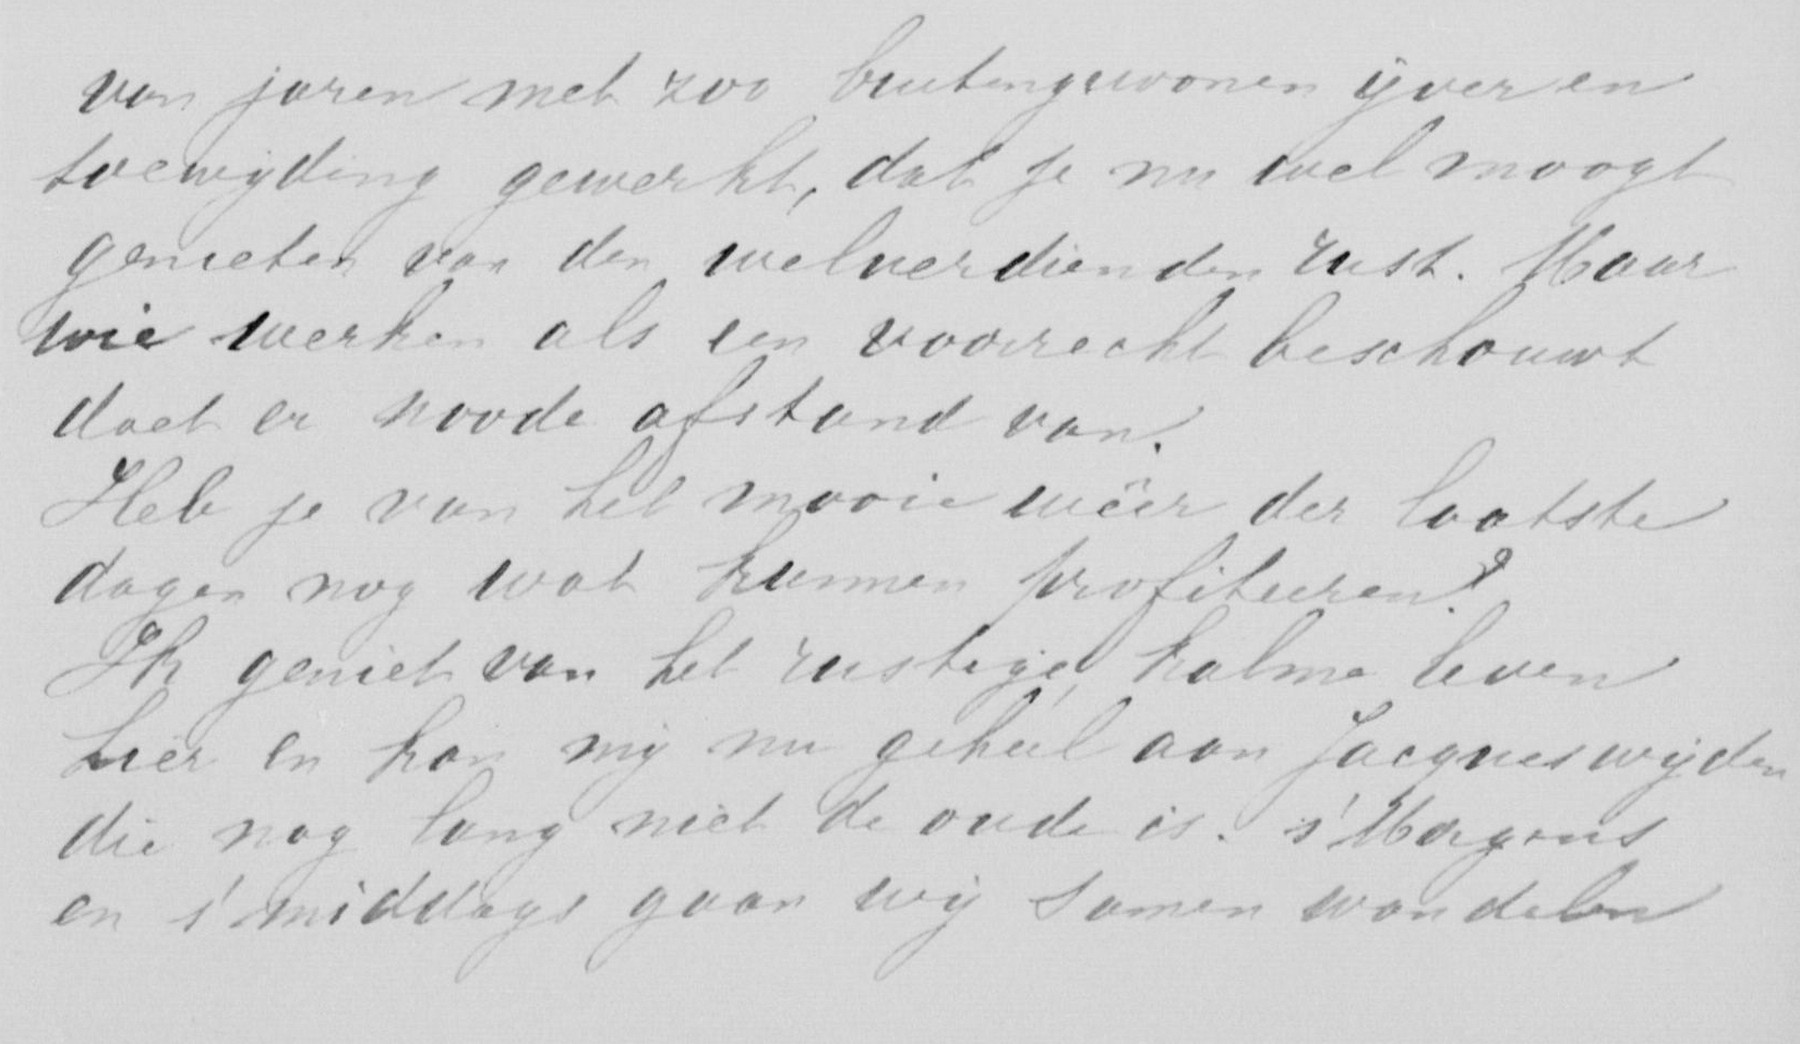 van jaren met zoo buitengewonen ijver en
toewijding gewerkt, dat je nu wel moogt
genieten van den welverdienden rust. Maar
wie werken als een voorrecht beschouwt
doet er noode afstand van.
Heb je van het mooie wëer der laatste
dagen nog wat kunnen profiteeren?
Ik geniet van het rustige, kalme leven
hier en kan mij nu geheel aan Jacques wijden
die nog lang niet de oude is. s'Morgens
en s'middags gaan wij samen wandelen